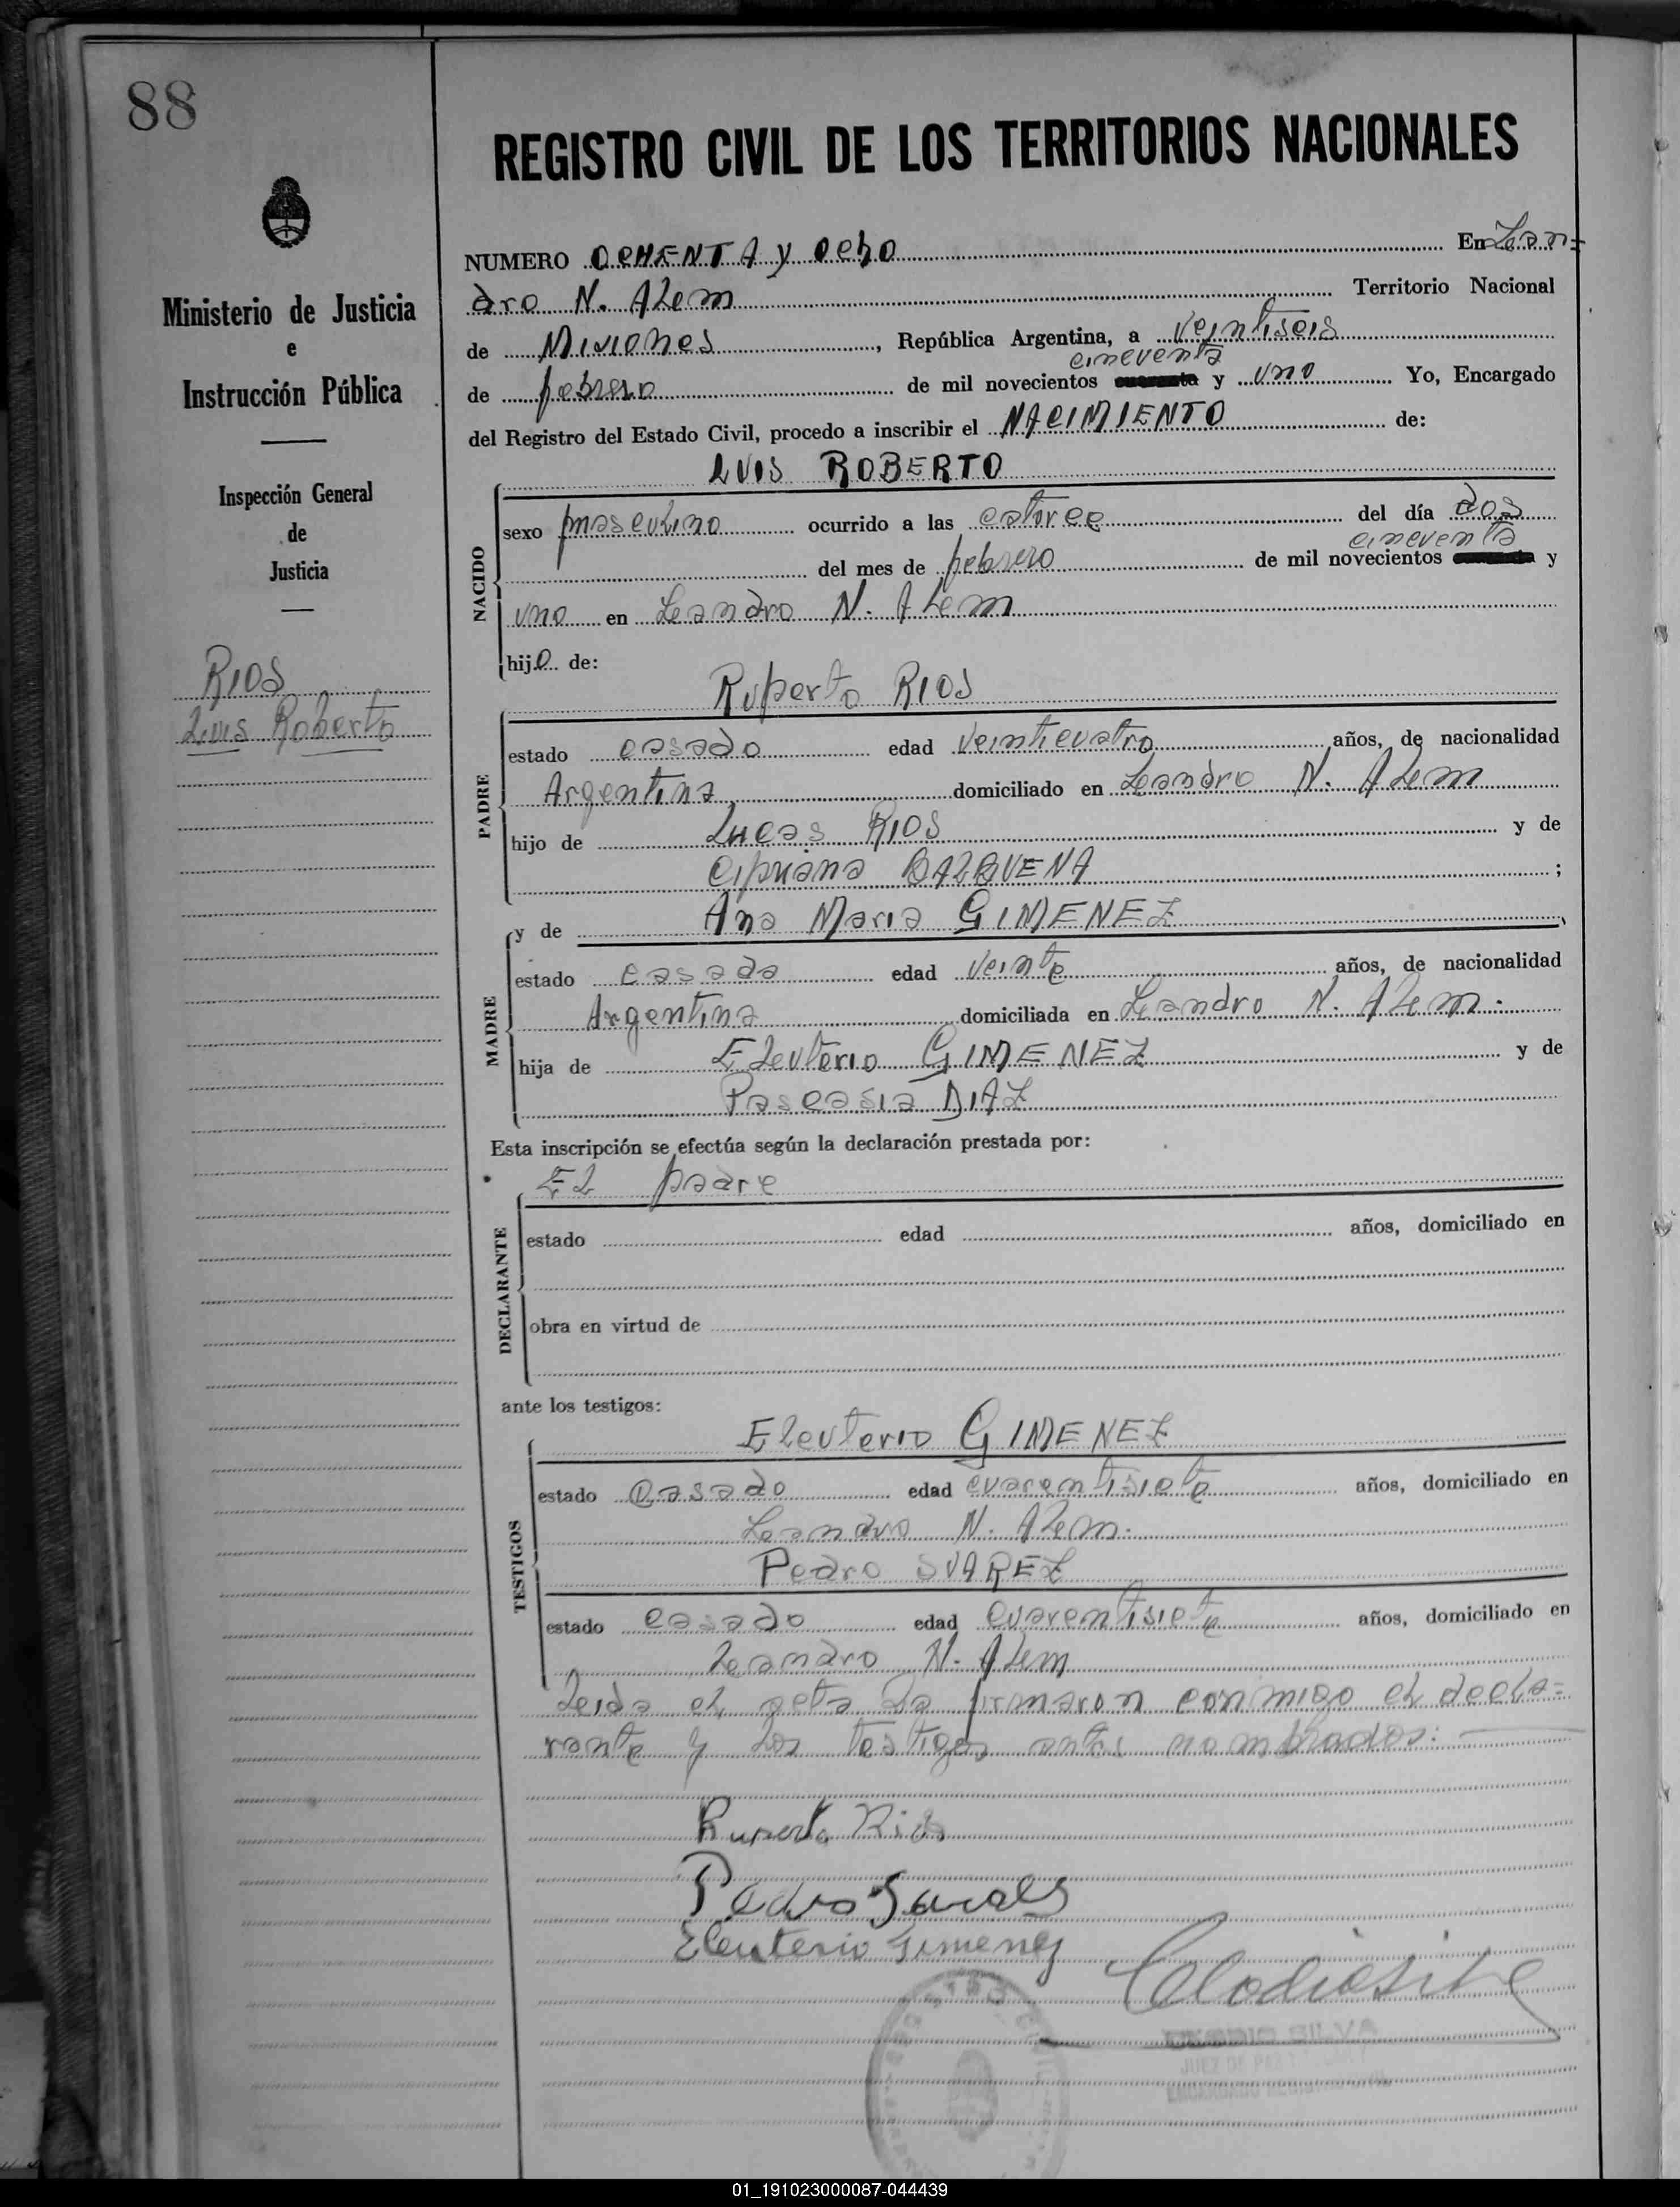 88
REGISTRO CIVIL DE LOS TERRITORIOS NACIONALES
Ministerio de Justicia
e
Instrucción Pública
Inspección General
de
Justicia
RIOS
Luis Roberto
NUMERO OCHENTA y ocho En Lean=
dro N. Alem Territorio Nacional
de Misiones, República Argentina, a veintiseis
cincuenta
de febrero de mil novecientos cuarenta y uno Yo, Encargado
del Registro del Estado Civil, procedo a inscribir el NACIMIENTO de:
LUIS ROBERTO
NACIDO
sexo masculino ocurrido a las catorce del día dos
cincuenta
del mes de febrero de mil novecientos cuarenta y
uno en Leandro N. Alem
hijo de:
Ruperto RIOS
PADRE
estado casado edad veinticuatro años, de nacionalidad
Argentina domiciliado en Leandro N. Alem
hijo de Lucas RIOS y de
Cipriana BALBUENA ;
y de Ana Maria GIMENEZ
MADRE
estado casada edad veinte años, de nacionalidad
Argentina domiciliada en Leandro N. Alem.
hija de Eleuterio GIMENEZ y de
Pascasia DIAZ
Esta inscripción se efectúa según la declaración prestada por:
El padre
DECLARANTE
estado edad años, domiciliado en
obra en virtud de
ante los testigos:
Eleuterio GIMENEZ
TESTIGOS
estado casado edad cuarentisiete años, domiciliado en
Leandro N. Alem.
Pedro SUAREZ
estado casado edad cuarentisiete años, domiciliado en
Leandro N. Alem
Leida el acta la firmaron conmigo el decla=
rante y los testigos antes nombrados:
Ruperto Rios
Pedro Suares
Eleuterio Gimenez
SILVA
JUEZ DE PAZ
ENCARGADO REGISTRO CIVIL
01_191023000087-044439